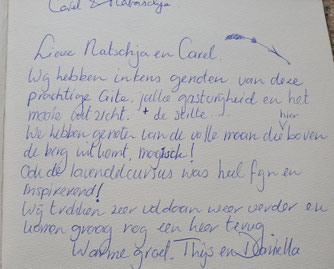 Carel & Natschja
Lieve Natschja en Carel.
Wij hebben intens genoten van deze
prachtige Gite, jullie gasturigheid en het
mooie uitzicht. + de stille.
hier
We hebben genoten van de volle maan die boven
de berg uit komt, magisch!
Ook de lavendelcursus was heel fijn en
inspirerend!
Wij trekken zeer voldaan weer verder en
komen graag nog een keer terug
Warme groet, Thijs en Daniella